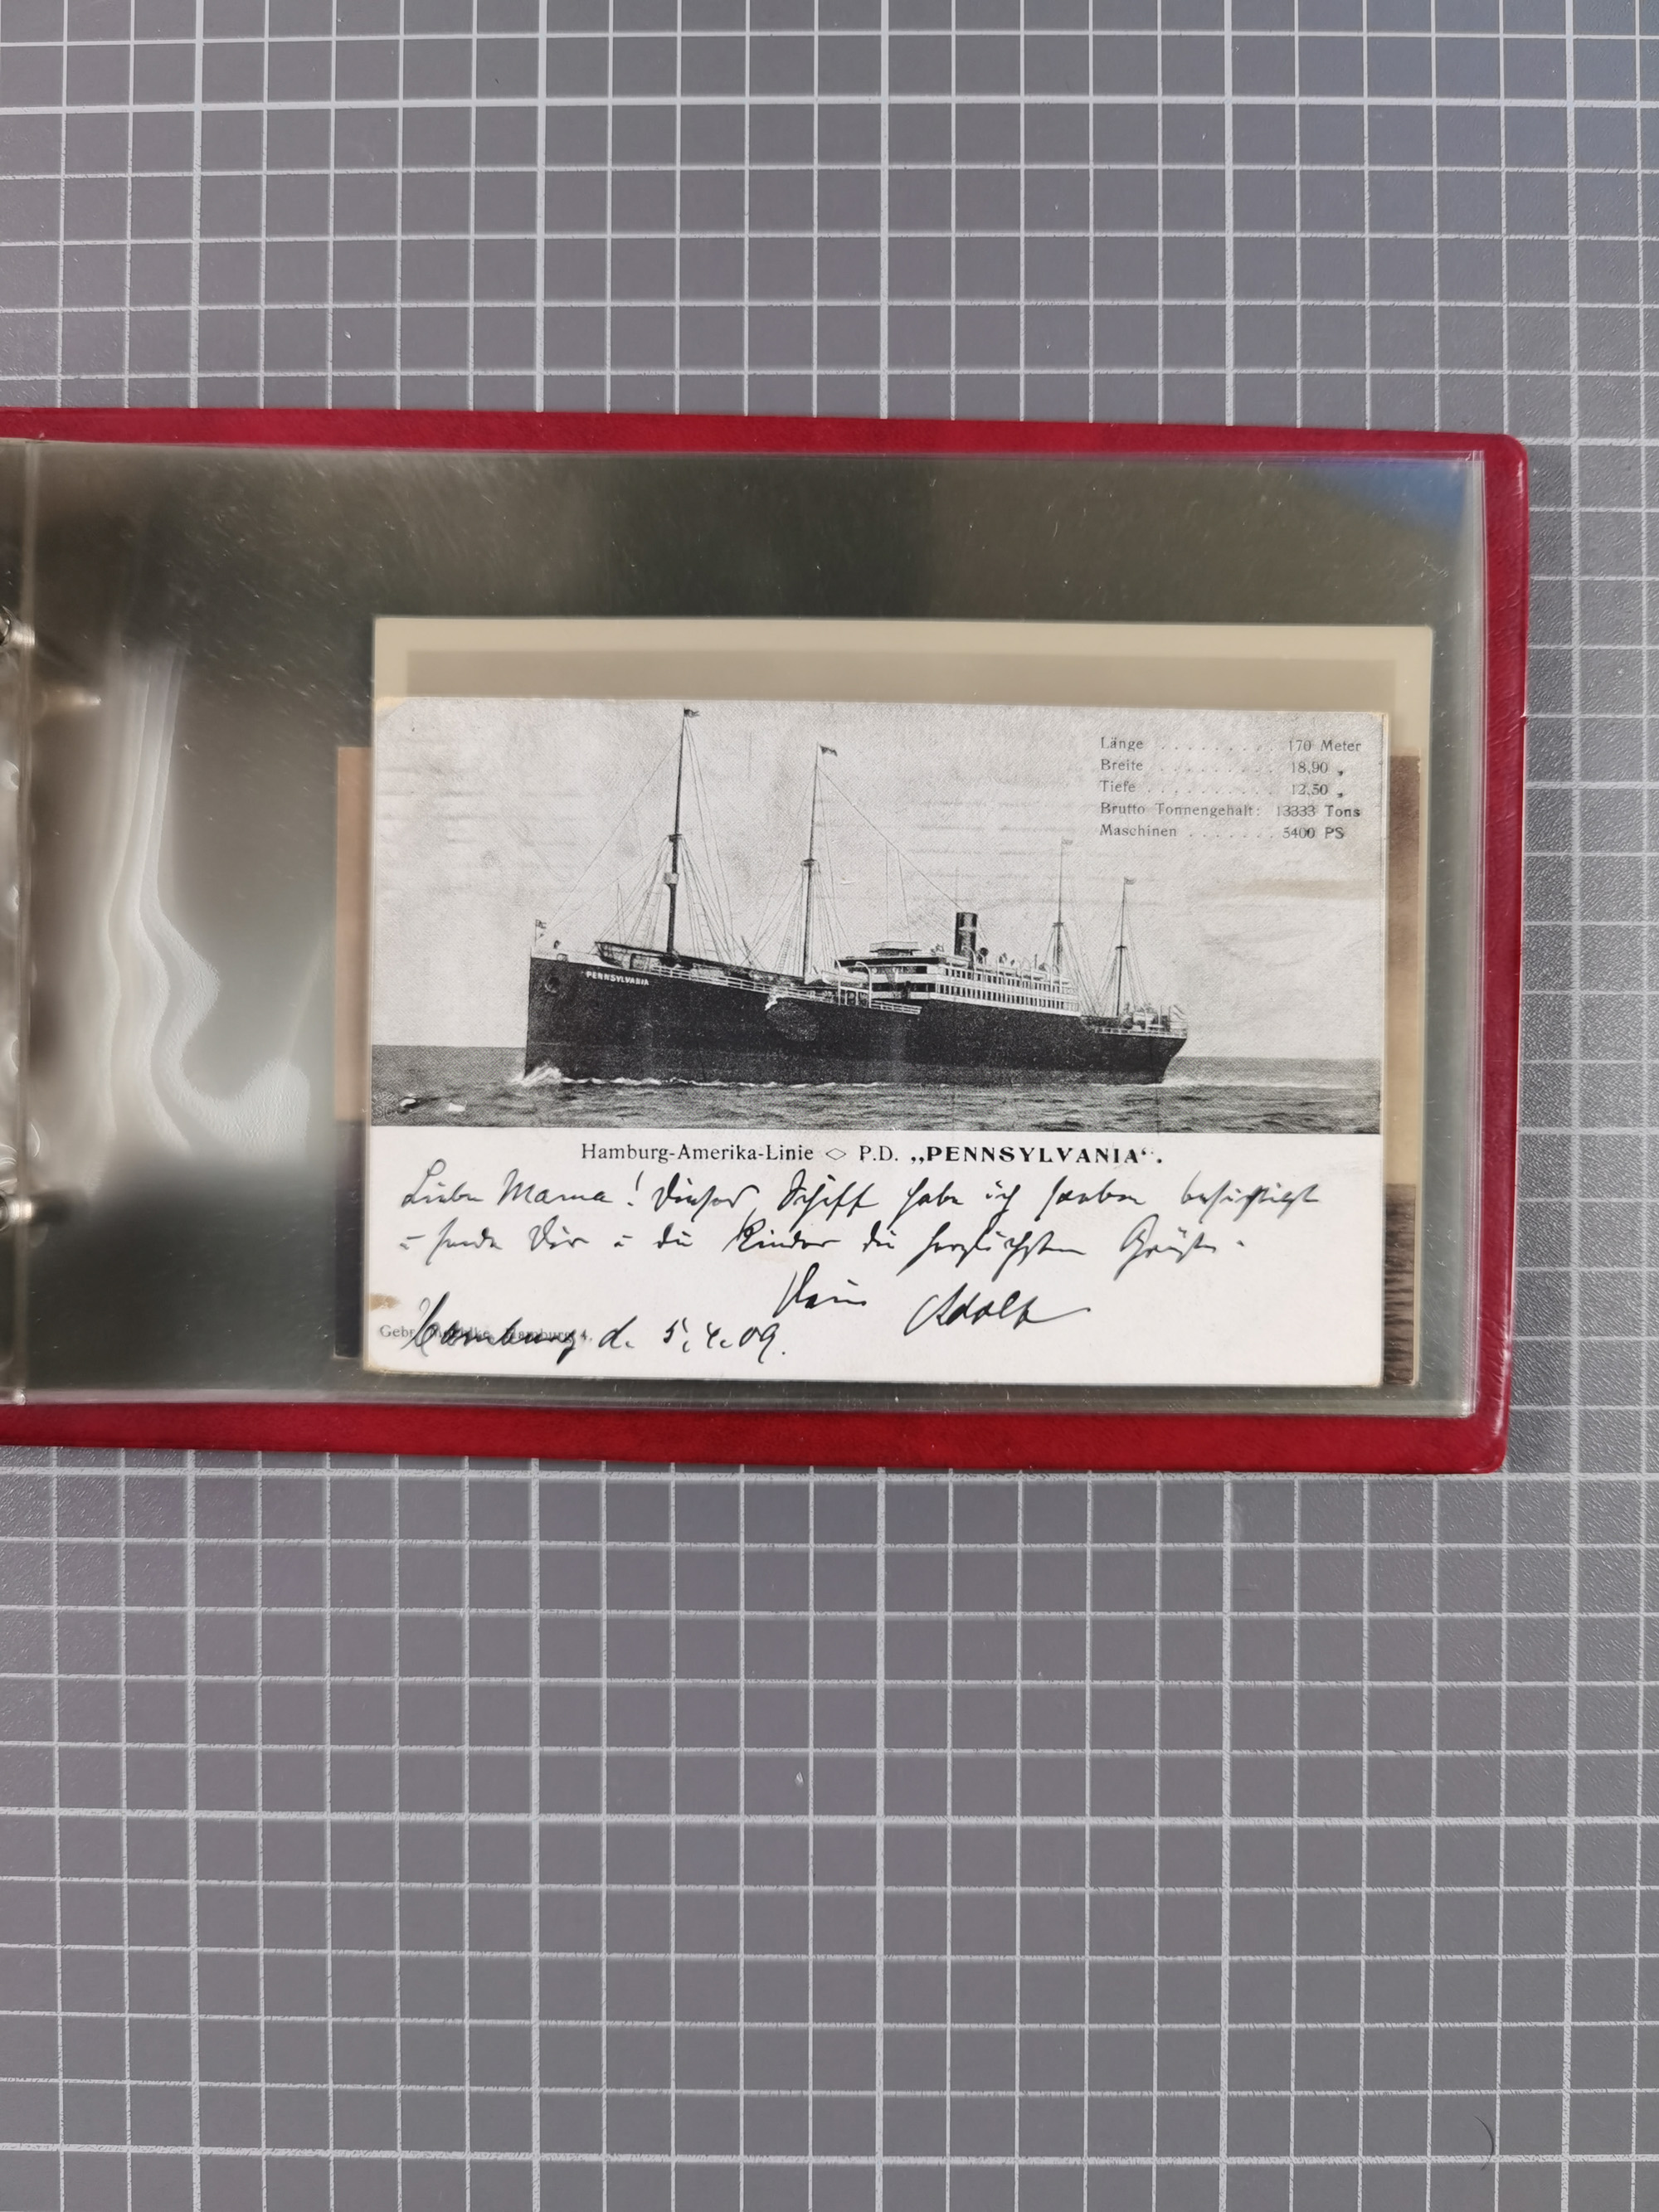 Länge . . . . . . . . . 170 Meter
Breite . . . . . . . . . 18,90 „
Tiefe . . . . . . . . . . 12,50 „
Brutto Tonnengehalt: 13333 Tons
Maschinen . . . . . . . 5400 PS
PENNSYLVANIA
Hamburg-Amerika-Linie ◇ P.D. „PENNSYLVANIA“.
Liebe Mama! Dieses Schiff habe ich soeben besichtigt
u sende Dir u die Kinder die herzlichsten Grüße.
Dein Adolf
Hamburg d. 5.4.09.
Gebr. Hamburg 4.